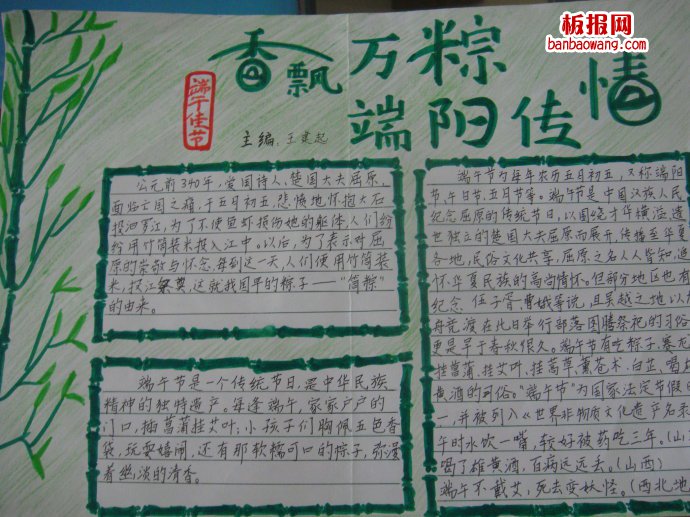 板报网
banbaowang.com
香飘万粽
端阳传情
端午佳节
主编:王建起
公元前340年,爱国诗人、楚国大夫屈原,
面临亡国之痛,于五月初五,悲愤地怀抱大石
投汩罗江,为了不使鱼虾损伤她的躯体,人们纷
纷用竹筒装米投入江中。以后,为了表示对屈
原的崇敬与怀念,每到这一天,人们便用竹筒装
米,投江祭奠,这就我国早的粽子——“筒粽”
的由来。
端午节是一个传统节日,是中华民族
精神的独特遗产。每逢端午,家家户户的
门口,插菖蒲挂艾叶,小孩子们胸佩五色香
袋,玩耍嬉闹,还有那软糯可口的粽子,弥漫
着幽淡的清香。
端午节为每年农历五月初五,又称端阳
节、午日节、五月节等。端午节是中国汉族人民
纪念屈原的传统节日,以围绕才华横溢、遗
世独立的楚国大夫屈原而展开,传播至华夏
各地,民俗文化共享,屈原之名人人皆知,追
怀华夏民族的高尚情怀。但部分地区也有
纪念 伍子胥、曹娥等说,且吴越之地以
舟竞渡在此日举行部落图腾祭祀的习俗
更是早于春秋很久。端午节有吃粽子,赛龙
挂菖蒲、挂艾叶,挂蒿草,薰苍术、白芷,喝
黄酒的习俗。“端午节”为国家法定节假
一,并被列入《世界非物质文化遗产名录
午时水饮一嘴,较好被药吃三年。(山
喝了雄黄酒,百病远远丢。(山西)
端午不戴艾,死去变妖怪。(西北地